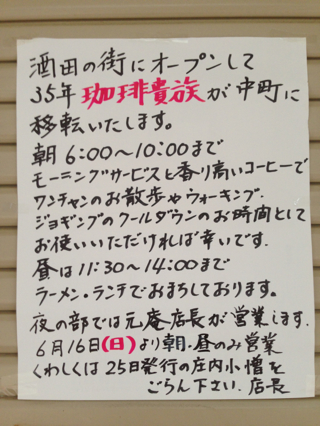 酒田の街にオープンして
35年 珈琲貴族が中町に
移転いたします。
朝 6:00〜10:00まで
モーニングサービスと香り高いコーヒーで
ワンチャンのお散歩やウォーキング.
ジョギングのクールダウンのお時間として
お使いいただければ幸いです.
昼は11:30〜14:00まで
ラーメン・ランチでおまちしております。
夜の部では元庵店長が営業します.
6月16日(日)より朝・昼のみ営業
くわしくは25日発行の庄内小僧を
ごらん下さい. 店長